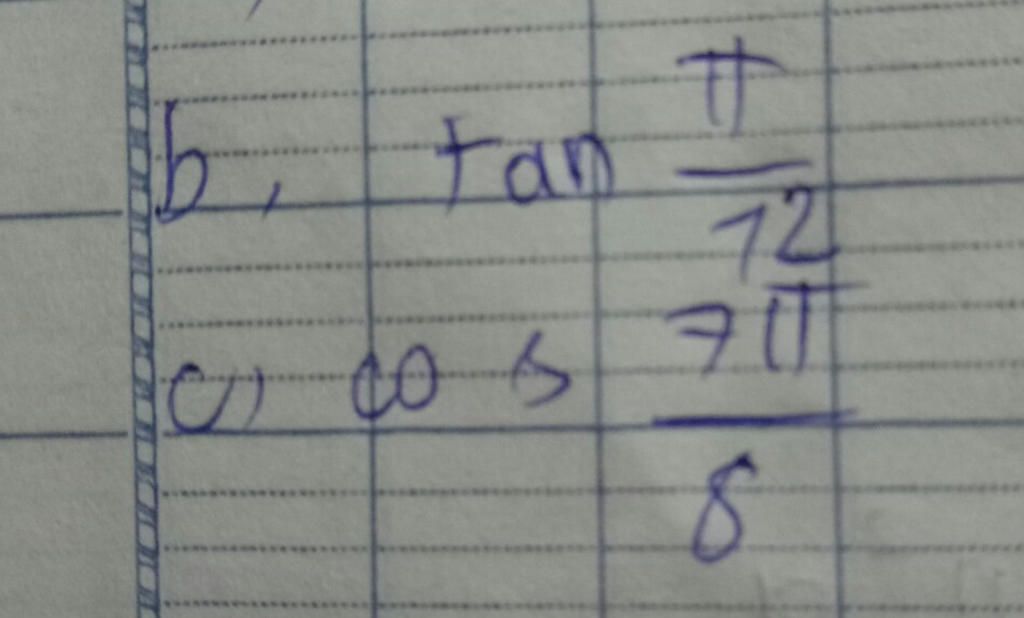 b, tan π/12
c, cos 7π/8